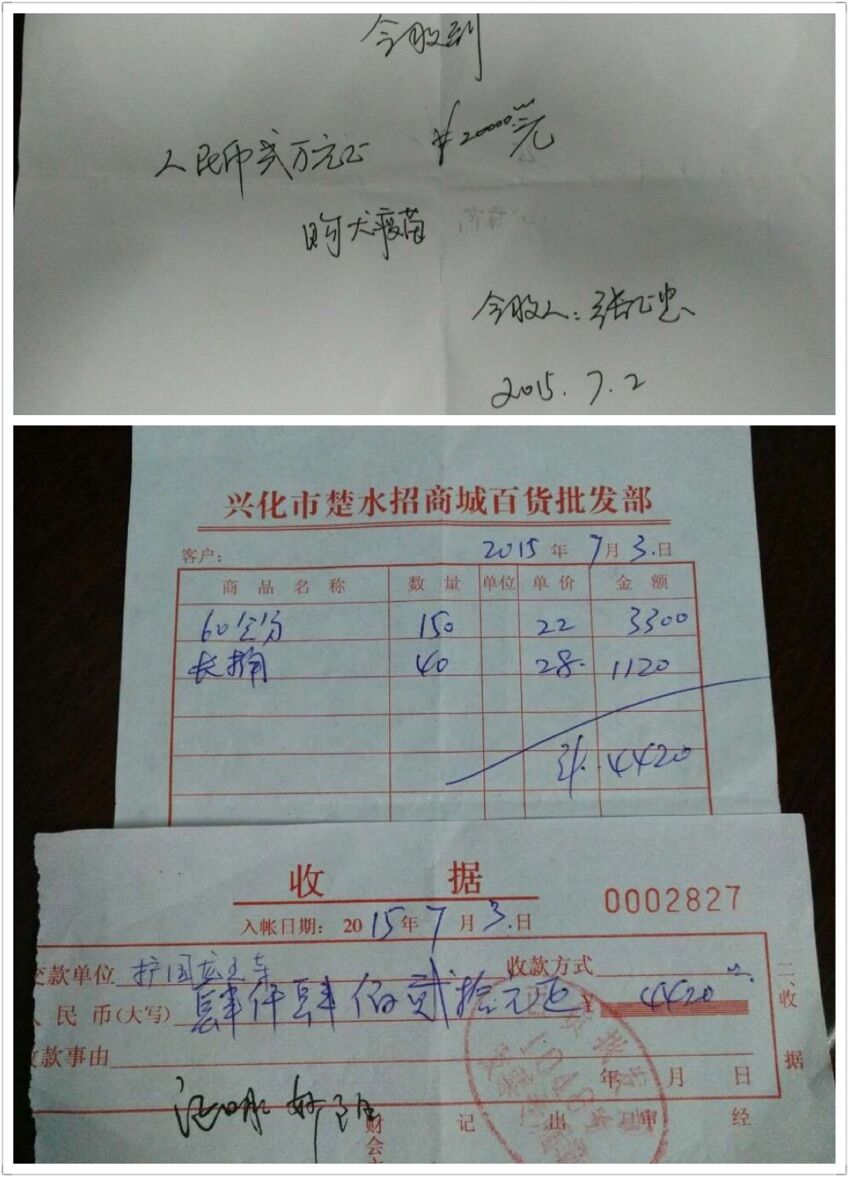 今收到
人民币贰万元正 ¥20000.00元
购犬疫苗
今收人：张正忠
2015.7.2
兴化市楚水招商城百货批发部
客户： 2015年7月3.日
商品名称 数量 单位 单价 金额
60 150 22 3300
长 40 28. 1120
计. 4420
收 据
0002827
入帐日期： 2015年7月3.日
交款单位 护国龙王寺 收款方式
人民币(大写) 肆仟肆佰贰拾元正 ¥ 4420
收款事由
年 月 日
二、收据
财会 记 出 审 经
1048